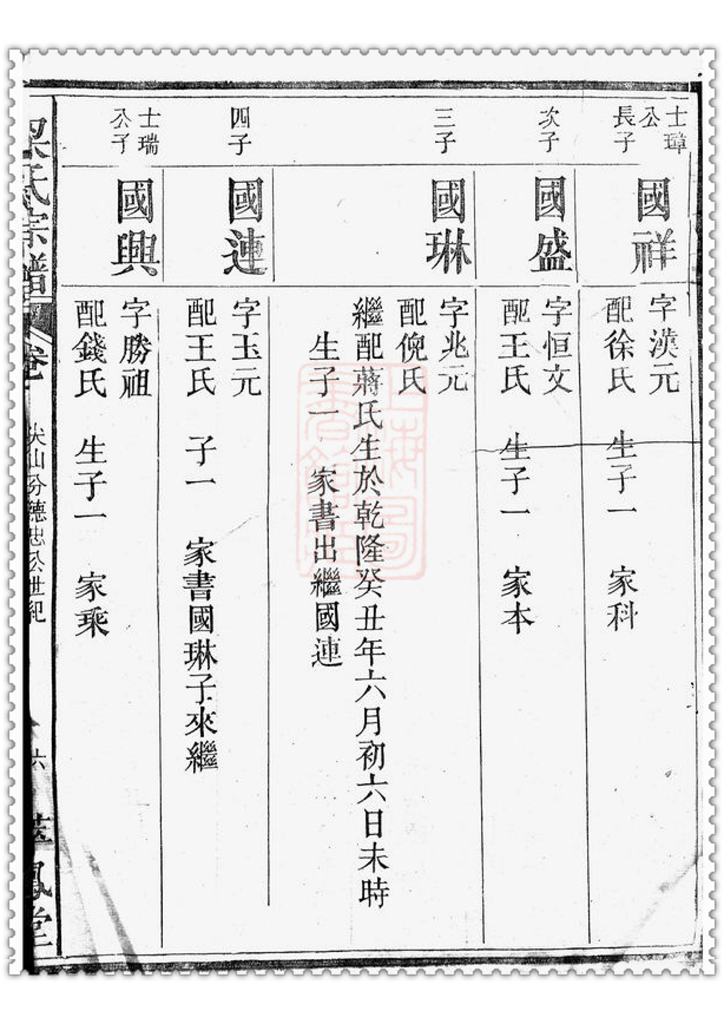 士璋
公
長子
國祥
字漢元
配徐氏 生子一 家科
次子
國盛
字恒文
配王氏 生子一 家本
三子
國琳
字兆元
配倪氏
繼配蔣氏生於乾隆癸丑年六月初六日未時
生子一 家書出繼國連
四子
國連
字玉元
配王氏 子一 家書國琳子來繼
士瑞
公子
國興
字勝祖
配錢氏 生子一 家乘
氏宗譜
卷一
尖山分德忠公世紀
六
鳳堂
上海圖
書館藏